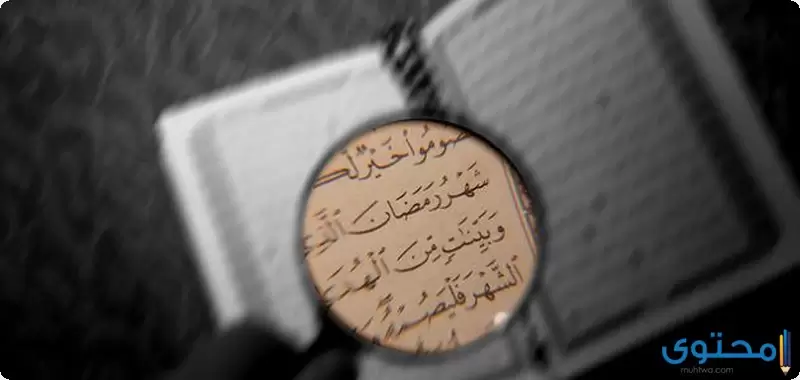 صومُوا۟ خَيْرٌ لَّك
شَهْرُ رَمَضَانَ ٱلَّذِى
وَبَيِّنَٰتٍ مِّنَ ٱلْهُدَىٰ
ٱلشَّهْرَ فَلْيَصُمْهُ
محتوى
muhtwa.com